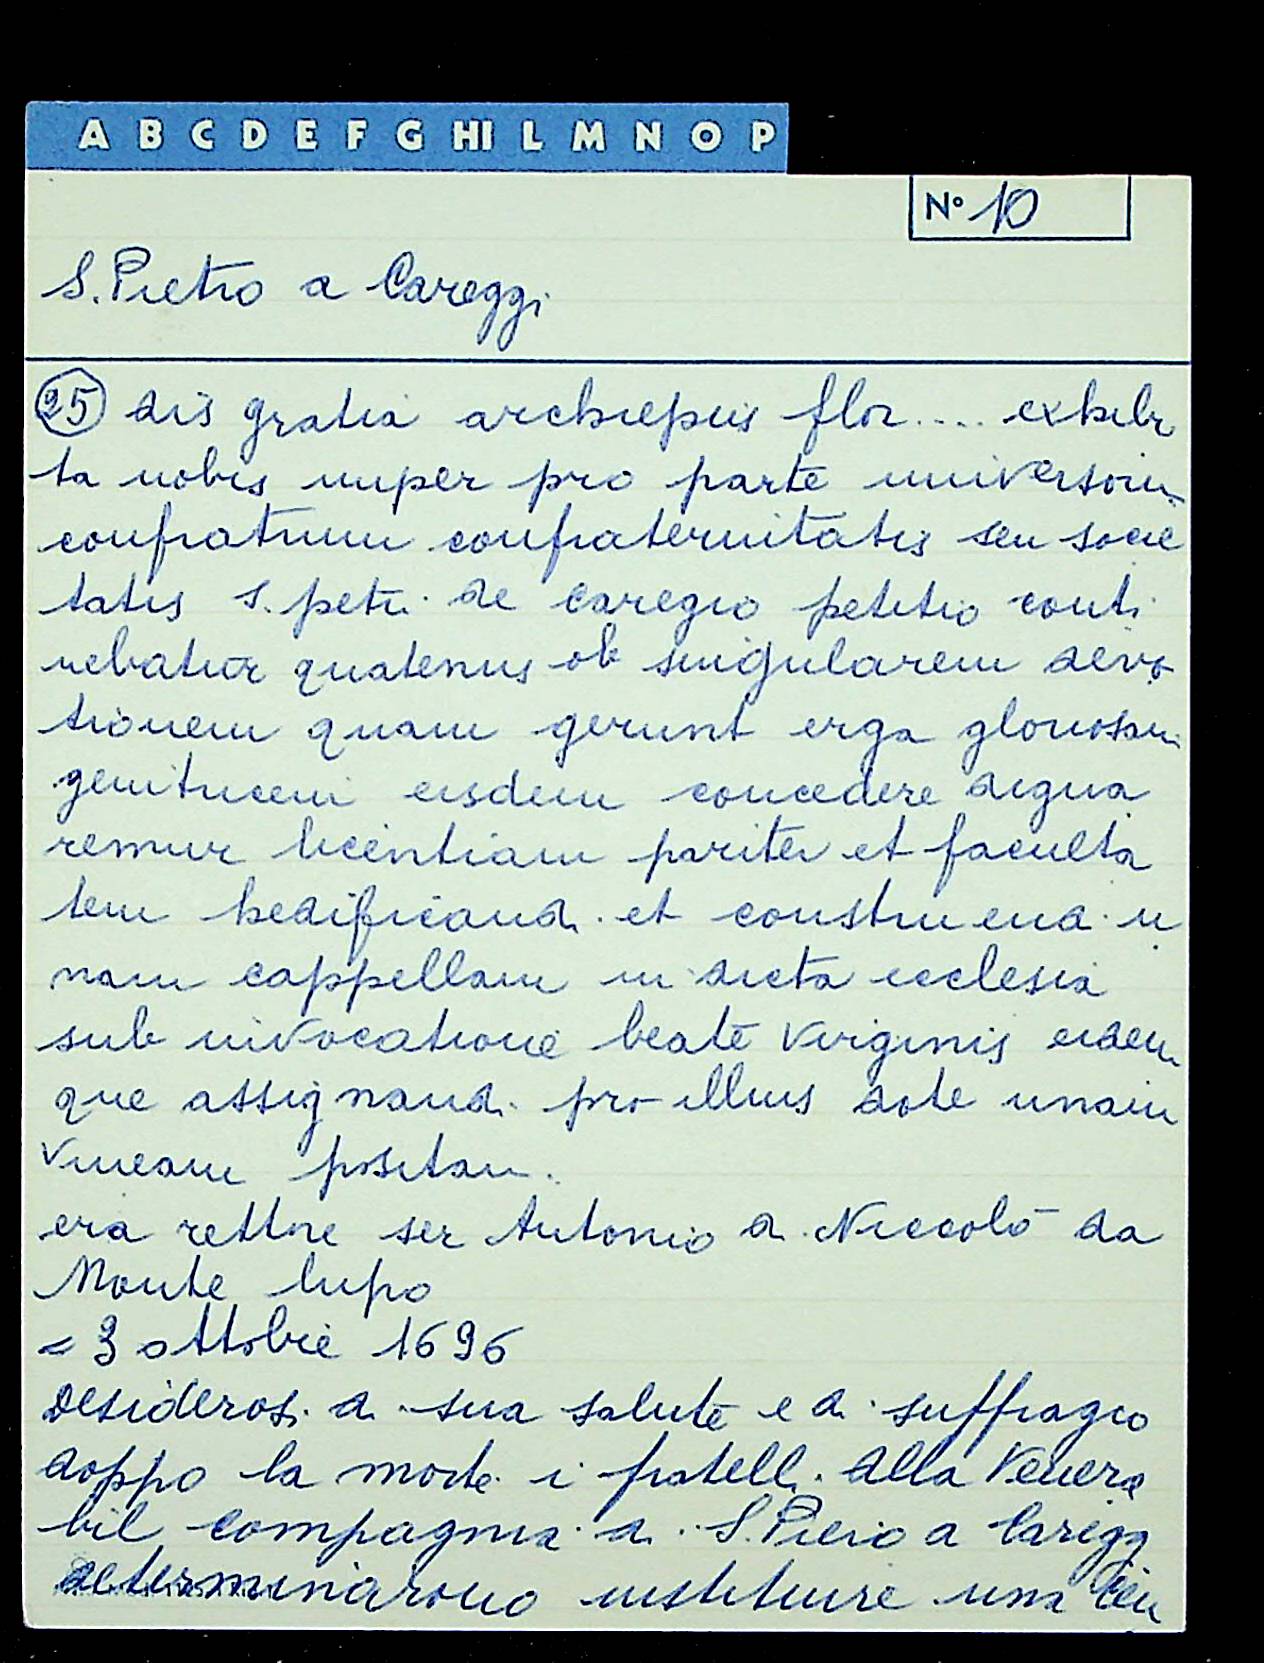 A B C D E F G HI L M N O P
N° 10
S. Pietro a Careggi
25 dis gratia archiepus flor .... exhibi
ta nobis nuper pro parte universoru
confratrum confraternitatis seu socie
tatis s. petri de caregio petitio conti
nebatur quatenus ob singularem devo
tionem quam gerunt erga gloriosam
genitricem eisdem concedere digna
remur licentiam pariter et faculta
tem hedificandi et construendi u
nam cappellam in dicta ecclesia
sub invocatione beate Virginis eidem
que assignandi pro illius dote unam
vineam positam.
era rettore ser Antonio di Niccolò da
Monte lupo
= 3 ottobre 1696
Desiderosi di sua salute e di suffragio
doppo la morte i fratelli della Venera
bil compagnia di S. Piero a Caregg
determinarono instituire una cen